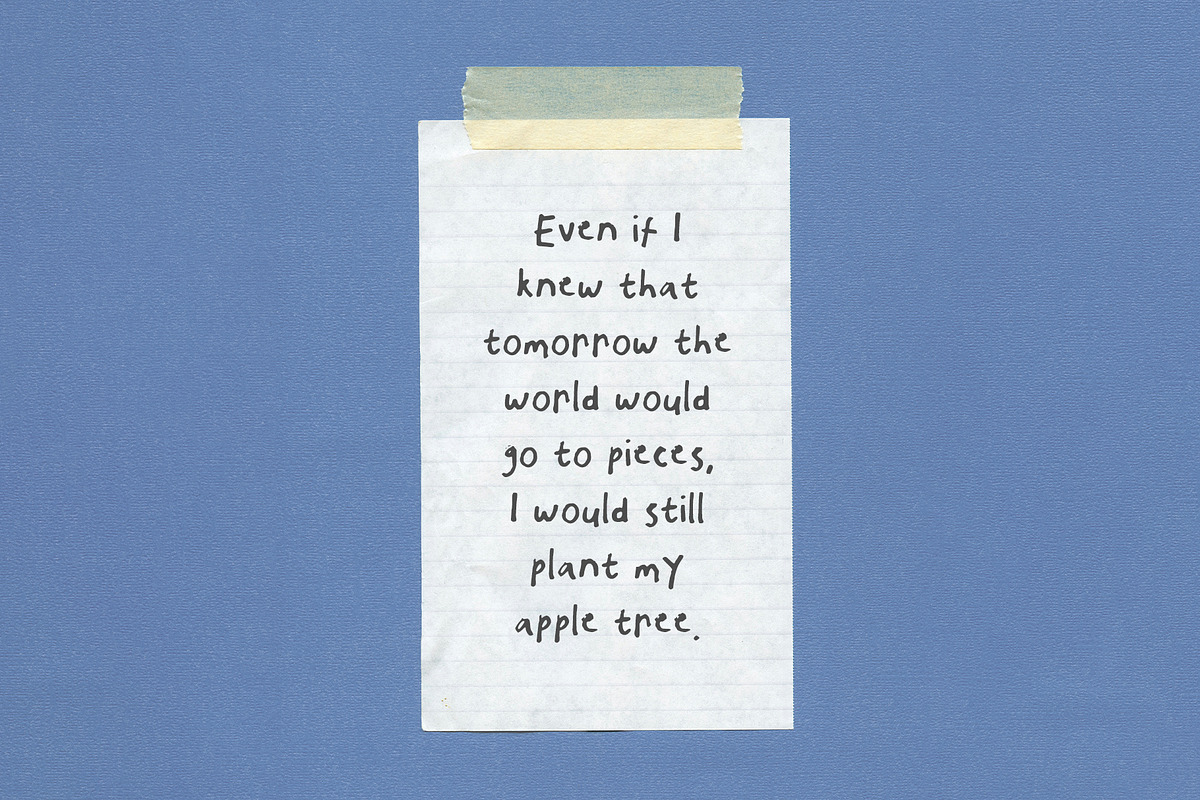 Even if I
knew that
tomorrow the
world would
go to pieces,
I would still
plant my
apple tree.